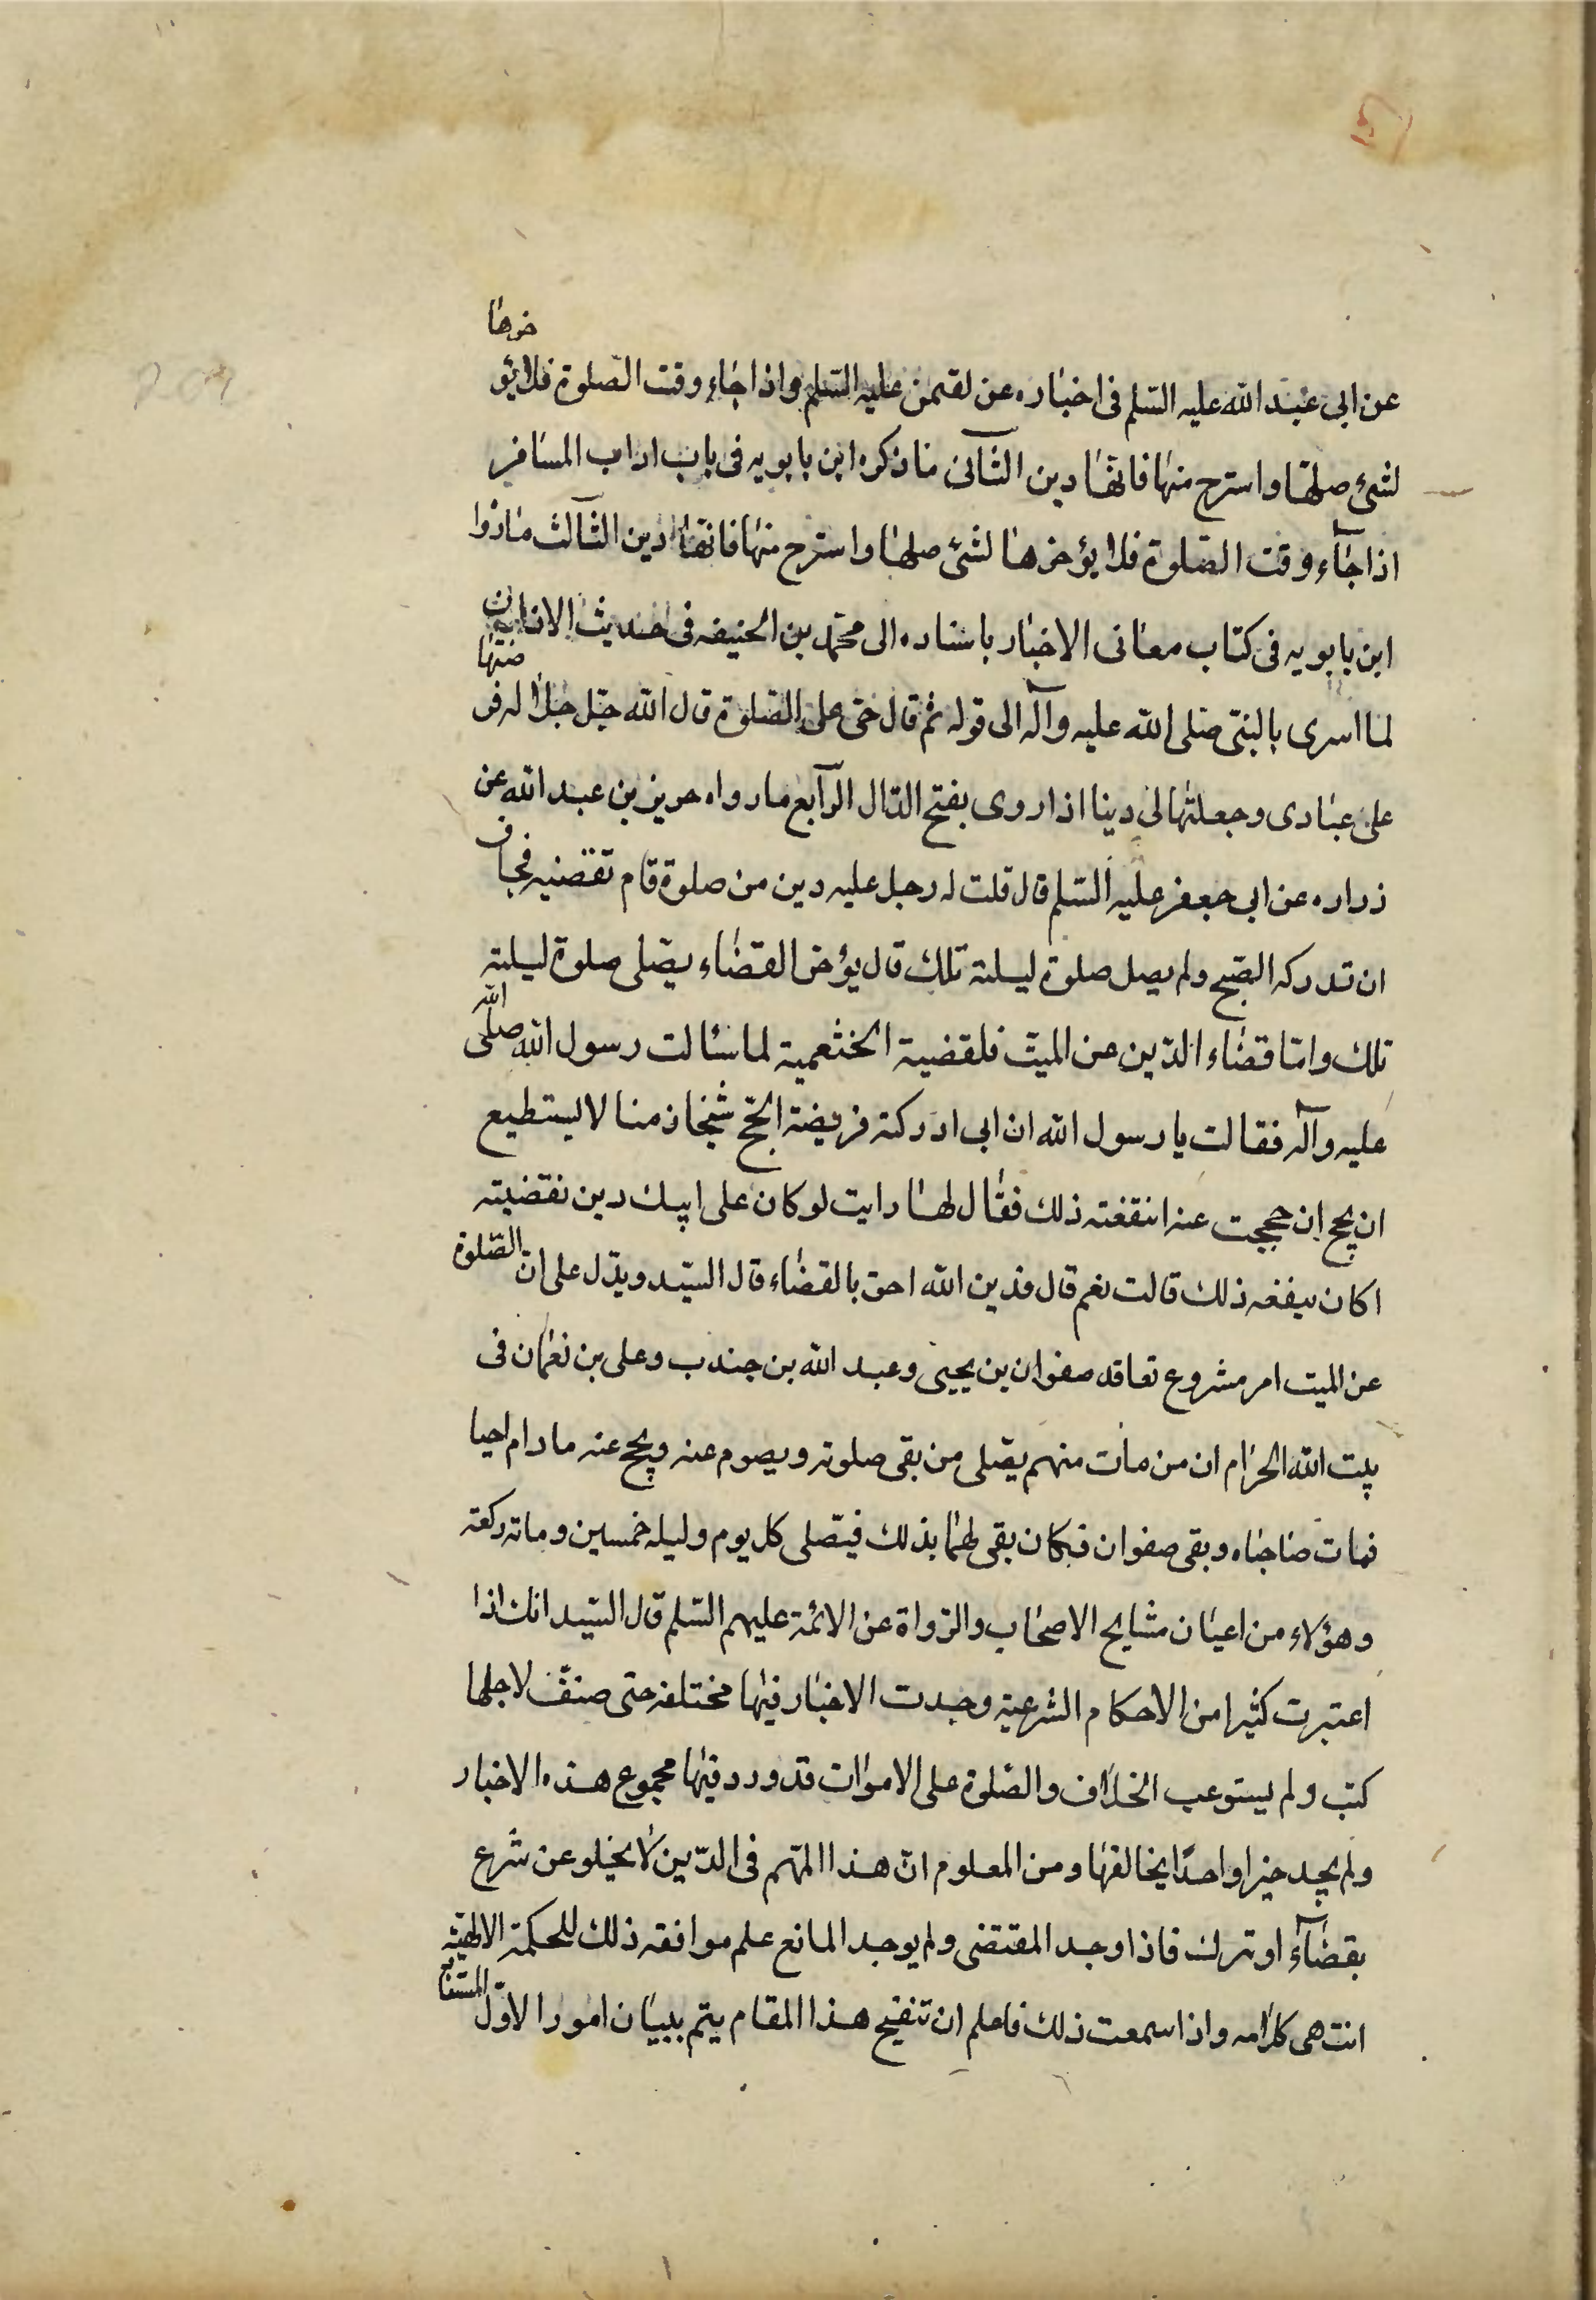 عن ابی عبد الله علیه السلم فی اخباره عن لقمن علیه السلم واذا جاء وقت الصلوة فلا یؤخرها
لشیء صلها واسترح منها فانها دین الثانی ما ذکره ابن بابویه فی باب اداب المسافر
اذا جاء وقت الصلوة فلا یؤخرها لشیء صلها واسترح منها فانها دین الثالث ما رواه
ابن بابویه فی کتاب معانی الاخبار باسناده الی محمد بن الحنیفه فی حدیث الاذان
لما اسری بالنبی صلی الله علیه وآله الی قوله ثم قال حی علی الصلوة قال الله جل جلاله فرضتها
علی عبادی وجعلتها لی دینا اذا روی بفتح الدال الرابع ما رواه حریز بن عبد الله عن
زراره عن ابی جعفر علیه السلم قال قلت له رجل علیه دین من صلوة قام تقضیه فخاف
ان تدرکه الصبح ولم یصل صلوة لیلته تلک قال یؤخر القضاء یصلی صلوة لیلته
تلک واما قضاء الدین عن المیت فلقضیة الخثعمیة لما سئالت رسول الله صلی الله
علیه وآله فقالت یا رسول الله ان ابی ادرکته فریضة الحج شیخا زمنا لا یستطیع
ان یحج ان حججت عنه اینفعته ذلک فقال لها رایت لو کان علی ابیک دین نقضیته
اکان ینفعه ذلک قالت نعم قال فدین الله احق بالقضاء قال السید ویدل علی ان الصلوة
عن المیت امر مشروع تعاقد صفوان بن یحیی وعبد الله بن جندب وعلی بن نعمان فی
بیت الله الحرام ان من مات منهم یصلی من بقی صلوته ویصوم عنه ویحج عنه ما دام احیا
فمات صاحباه وبقی صفوان فکان بقی لهما بذلک فیصلی کل یوم ولیله خمسین وماته رکعته
وهؤلاء من اعیان مشایح الاصحاب والرواة عن الائمة علیهم السلم قال السید انک اذا
اعتبرت کثیرا من الاحکام الشرعیة وجدت الاخبار فیها مختلفه حتی صنف لاجلها
کتب ولم یستوعب الخلاف والصلوة علی الاموات قد ورد فیها مجموع هذه الاخبار
ولم یجد خبرا واحدا یخالفها ومن المعلوم ان هذا المهم فی الدین لا یخلو عن شرع
بقضاء او ترک فاذا وجد المقتضی ولم یوجد المانع علم موافقه ذلک للحکمة الالهیة
انتهی کلامه واذا سمعت ذلک فاعلم ان تنقیح هذا المقام یتم ببیان امور الاول